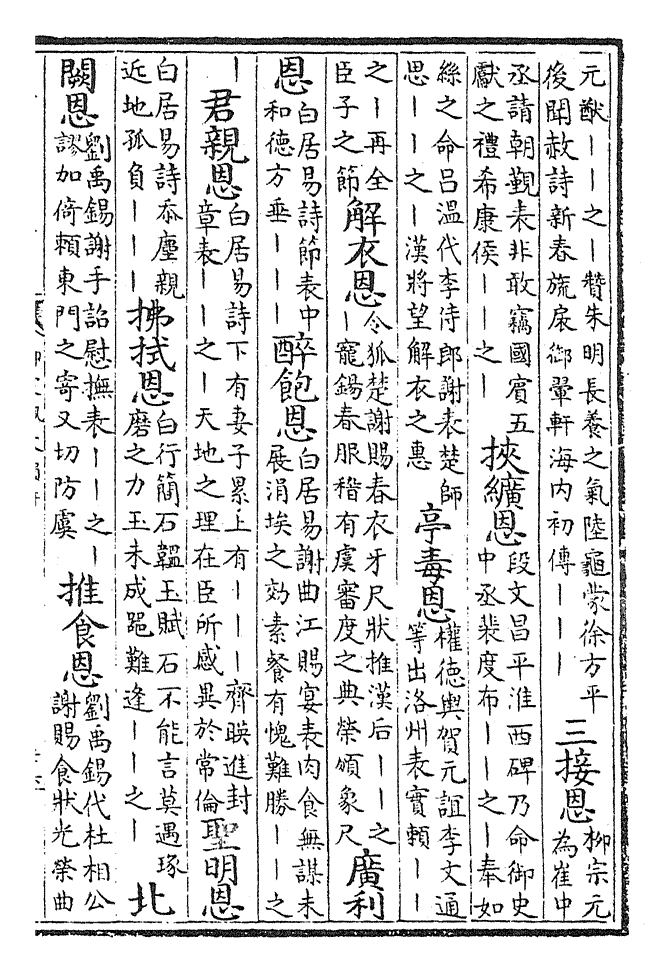 元猷｜｜之｜贊朱明長養之氣陸龜蒙徐方平後聞赦詩新春旒扆御翬軒海内初傳｜｜｜三接恩柳宗元為崔中
丞請朝覲表非敢竊國賓五獻之禮希康侯｜｜之｜挾纊恩段文昌平淮西碑乃命御史中丞裴度布｜｜之｜奉如
絲之命吕温代李侍郎謝表楚師思｜｜之｜漢將望解衣之惠亭毒恩權德輿賀元誼李文通等出洛州表實賴｜｜
之｜再全臣子之節解衣恩令狐楚謝賜春衣牙尺狀推漢后｜｜之｜寵錫春服稽有虞審度之典榮頒象尺廣利
恩白居易詩節表中和德方垂｜｜｜醉飽恩白居易謝曲江賜宴表肉食無謀未展涓埃之効素餐有愧難勝｜｜之
｜君親恩白居易詩下有妻子累上有｜｜｜齊映進封章表｜｜之｜天地之理在臣所感異於常倫聖明恩
白居易詩忝塵親近地孤負｜｜｜拂拭恩白行簡石韞玉賦石不能言莫遇琢磨之力玉未成跑難逢｜｜之｜北
闕恩劉禹錫謝手詔慰撫表｜｜之｜謬加倚賴東門之寄又切防虞推食恩劉禹錫代杜相公謝賜食狀光榮曲